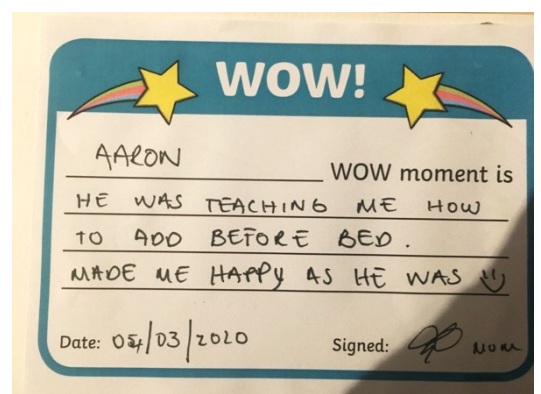 WOW!
AARON WOW moment is
HE WAS TEACHING ME HOW
TO ADD BEFORE BED.
MADE ME HAPPY AS HE WAS
Date: /03/2020 Signed: MUM